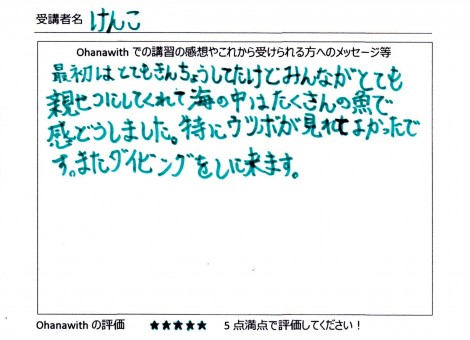 受講者名 けんこ
Ohanawith での講習の感想やこれから受けられる方へのメッセージ等
最初はとてもきんちょうしてたけどみんながとても
親せつにしてくれて海の中はたくさんの魚で
感どうしました。特にウツボが見れてよかったで
す。またダイビングをしに来ます。
Ohanawith の評価 ★★★★★ 5 点満点で評価してください！